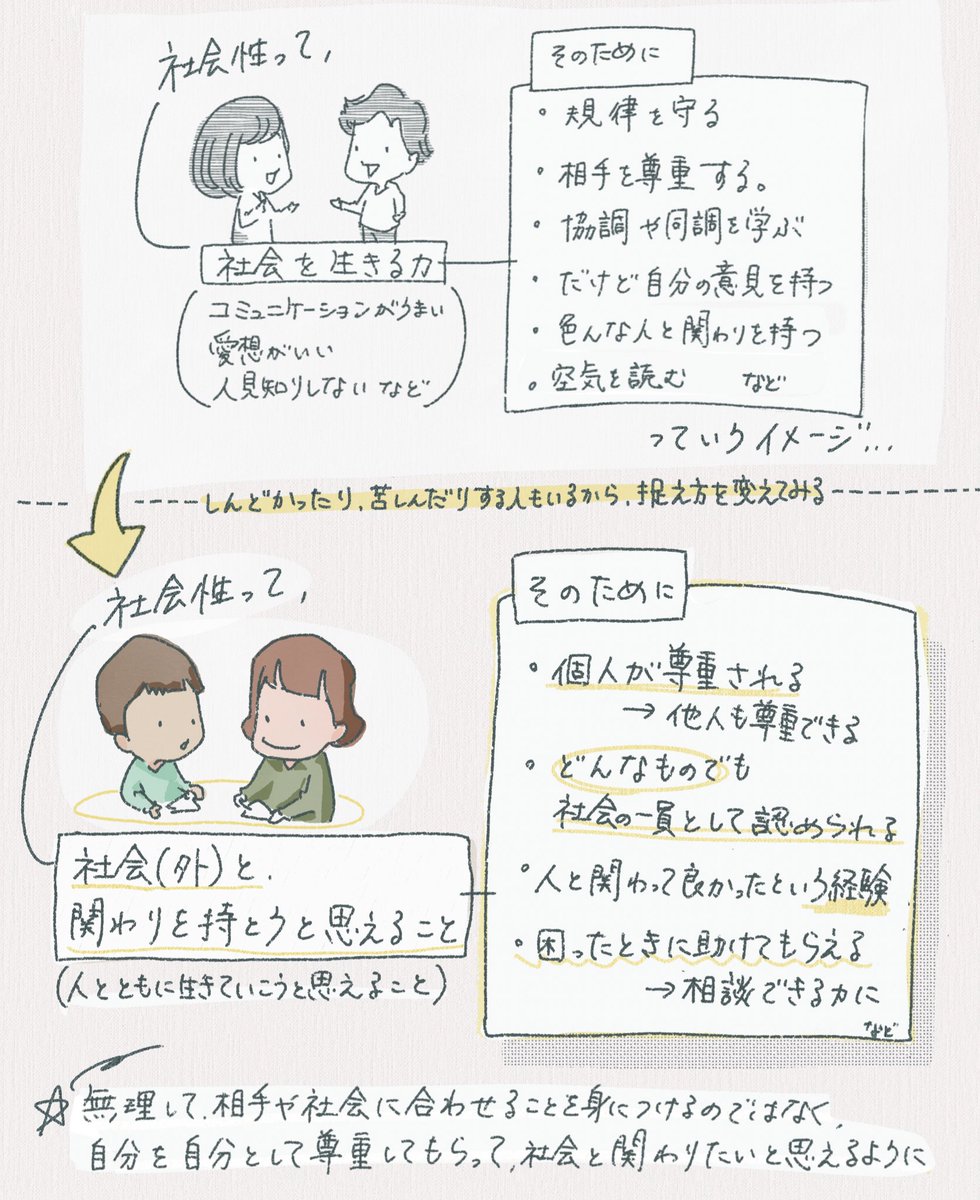 社会性って,
社会を生きる力
(コミュニケーションがうまい
愛想がいい
人見知りしない など)
そのために
・規律を守る
・相手を尊重する。
・協調や同調を学ぶ
・だけど自分の意見を持つ
・色んな人と関わりを持つ
・空気を読む など
っていうイメージ…
しんどかったり、苦しんだりする人もいるから、捉え方を変えてみる
社会性って,
社会(外)と、
関わりを持とうと思えること
(人とともに生きていこうと思えること)
そのために
・個人が尊重される
→他人も尊重できる
・どんなものでも
社会の一員として認められる
・人と関わって良かったという経験
・困ったときに助けてもらえる
→相談できる力に
など
☆無理して、相手や社会に合わせることを身につけるのではなく、
自分を自分として尊重してもらって、社会と関わりたいと思えるように